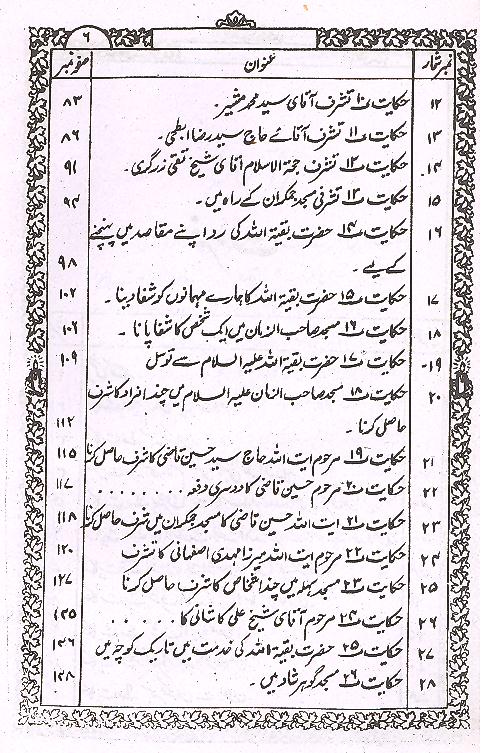 ۶
نمبر شمار عنوان صفحہ نمبر
۱۲ حکایت ۱۰ تشرف آقای سید محمد مشیر۔ ۸۳
۱۳ حکایت ۱۱ تشرف آقائے حاج سید رضا ابطحی۔ ۸۶
۱۴ حکایت ۱۲ تشرف حجۃ الاسلام آقای شیخ تقی زرگری۔ ۹۱
۱۵ حکایت ۱۳ تشرفی مسجد جمکران کے راہ میں۔ ۹۴
۱۶ حکایت ۱۴ حضرت بقیۃ اللہ کی رد اپنے مقاصد میں پہنچنے
کے لیے۔ ۹۸
۱۷ حکایت ۱۵ حضرت بقیۃ اللہ کا ہمارے مہمانوں کو شفا دینا۔ ۱۰۲
۱۸ حکایت ۱۶ مسجد صاحب الزمان میں ایک شخص کا شفا پانا۔ ۱۰۶
۱۹ حکایت ۱۷ حضرت بقیۃ اللہ علیہ السلام سے توسل ۱۰۹
۲۰ حکایت ۱۸ مسجد صاحب الزمان علیہ السلام میں چند افراد کا شرف
حاصل کرنا۔ ۱۱۲
۲۱ حکایت ۱۹ مرحوم ایت اللہ حاج سید حسین قاضی کا شرف حاصل کرنا ۱۱۵
۲۲ حکایت ۲۰ مرحوم حسین قاضی کا دوسری دفعہ ........ ۱۱۷
۲۳ حکایت ۲۱ ایت اللہ حسین قاضی کا مسجد جمکران میں شرف حاصل کرنا ۱۱۸
۲۴ حکایت ۲۲ مرحوم ایت اللہ میرزا مہدی اصفہانی کا تشرف ۱۲۰
۲۵ حکایت ۲۳ مسجد سہلہ میں چند اشخاص کا شرف حاصل کرنا ۱۲۷
۲۶ حکایت ۲۴ مرحوم آقای شیخ علی کاشانی کا ..... ۱۳۵
۲۷ حکایت ۲۵ حضرت بقیۃ اللہ کی خدمت میں تاریک کوچہ میں ۱۳۶
۲۸ حکایت ۲۶ مسجد گوہر شاد میں۔ ۱۳۸